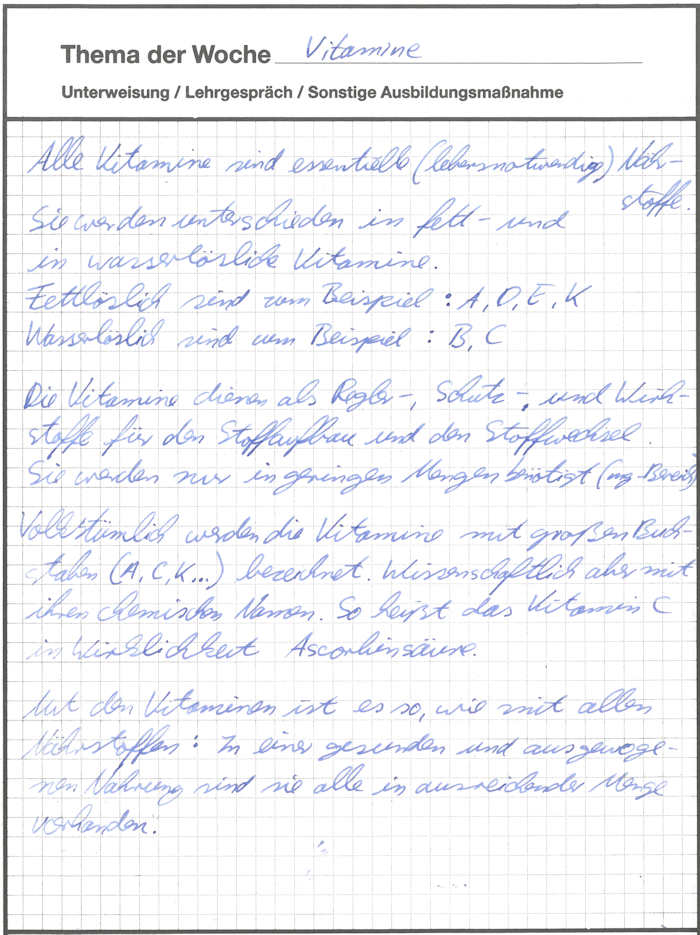 Thema der Woche Vitamine
Unterweisung / Lehrgespräch / Sonstige Ausbildungsmaßnahme
Alle Vitamine sind essentielle (lebensnotwendig) Nähr-
stoffe.
Sie werden unterschieden in fett- und
in wasserlösliche Vitamine.
Fettlöslich sind zum Beispiel : A, D, E, K
Wasserlöslich sind zum Beispiel : B, C
Die Vitamine dienen als Regler-, Schutz-, und Wirk-
stoffe für den Stoffaufbau und den Stoffwechsel.
Sie werden nur in geringen Mengen benötigt (mg-Bereich)
Volkstümlich werden die Vitamine mit großen Buch-
staben (A, C, K...) bezeichnet. Wissenschaftlich aber mit
ihren chemischen Namen. So heißt das Vitamin C
in Wirklichkeit Ascorbinsäure.
Mit den Vitaminen ist es so, wie mit allen
Nährstoffen: In einer gesunden und ausgewoge-
nen Nahrung sind sie alle in ausreichender Menge
vorhanden.